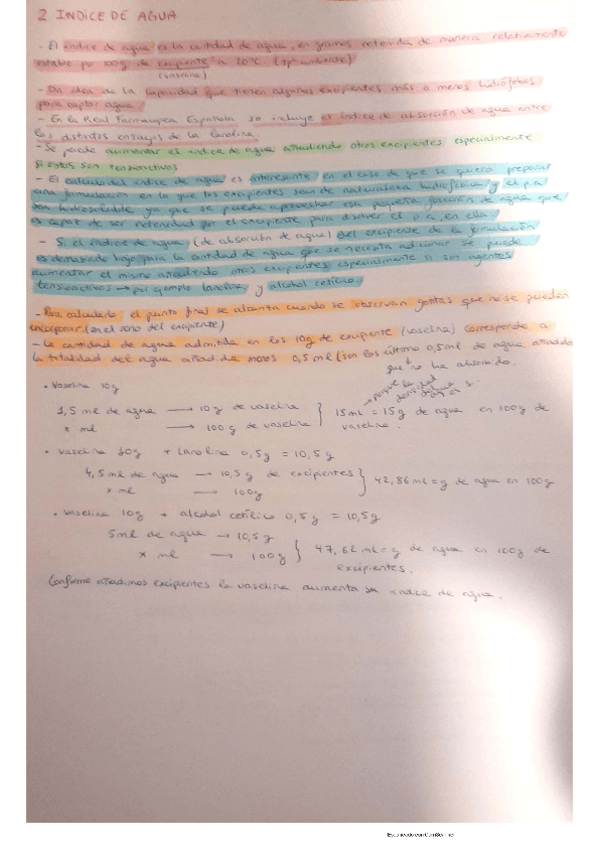 2 INDICE DE AGUA
- El índice de agua es la cantidad de agua, en gramos retenida de manera relativamente
estable por 100g de excipiente a 20ºC. (tp ambiente)
(vaselina)
- Da idea de la capacidad que tienen algunos excipientes más o menos hidrófobos
para captar agua.
- En la Real Farmacopea Española se incluye es índice de absorción de agua entre
los distintos ensayos de la lanolina.
- Se puede aumentar el índice de agua añadiendo otros excipientes especialmente
si estos son tensoactivos
- El calculo del índice de agua es interesante en el caso de que se quiera preparar
una formulación en la que los excipientes sean de naturaleza hidrofóbica y el p.a
sea hidrosoluble ya que se puede aprovechar esa pequeña fracción de agua que
es capaz de ser retenida por el excipiente para disolver el p.a, en ella.
- Si el índice de agua (de absorción de agua) del excipiente de la formulación
es demasiado bajo para la cantidad de agua que se necesita adicionar se puede
aumentar el mismo añadiendo otros excipientes especialmente si son agentes
tensoactivos → por ejemplo lanolina y alcohol cetílico
- Para calcularlo el punto final se alcanza cuando se observan gotitas que no se pueden
incorporar (en el seno del excipiente)
- La cantidad de agua admitida en los 10g de excipiente (vaselina) corresponde a
la totalidad del agua añadida menos 0,5 ml (son los último 0,5ml de agua añadida
que no ha absorbido.
• Vaselina 10g
porque la densidad del agua es 1.
1,5 ml de agua → 10g de vaselina } 15ml = 15g de agua en 100g de
x ml → 100g de vaselina vaselina.
• Vaselina 10g + lanolina 0,5g = 10,5g
4,5ml de agua → 10,5g de excipientes } 42,86ml = g de agua en 100g
x ml → 100g
• Vaselina 10g + alcohol cetílico 0,5g = 10,5g
5ml de agua → 10,5g
x ml → 100g } 47,62 ml = g de agua en 100g de
excipientes.
Conforme añadimos excipientes la vaselina aumenta su índice de agua.
Escaneado con CamScanner